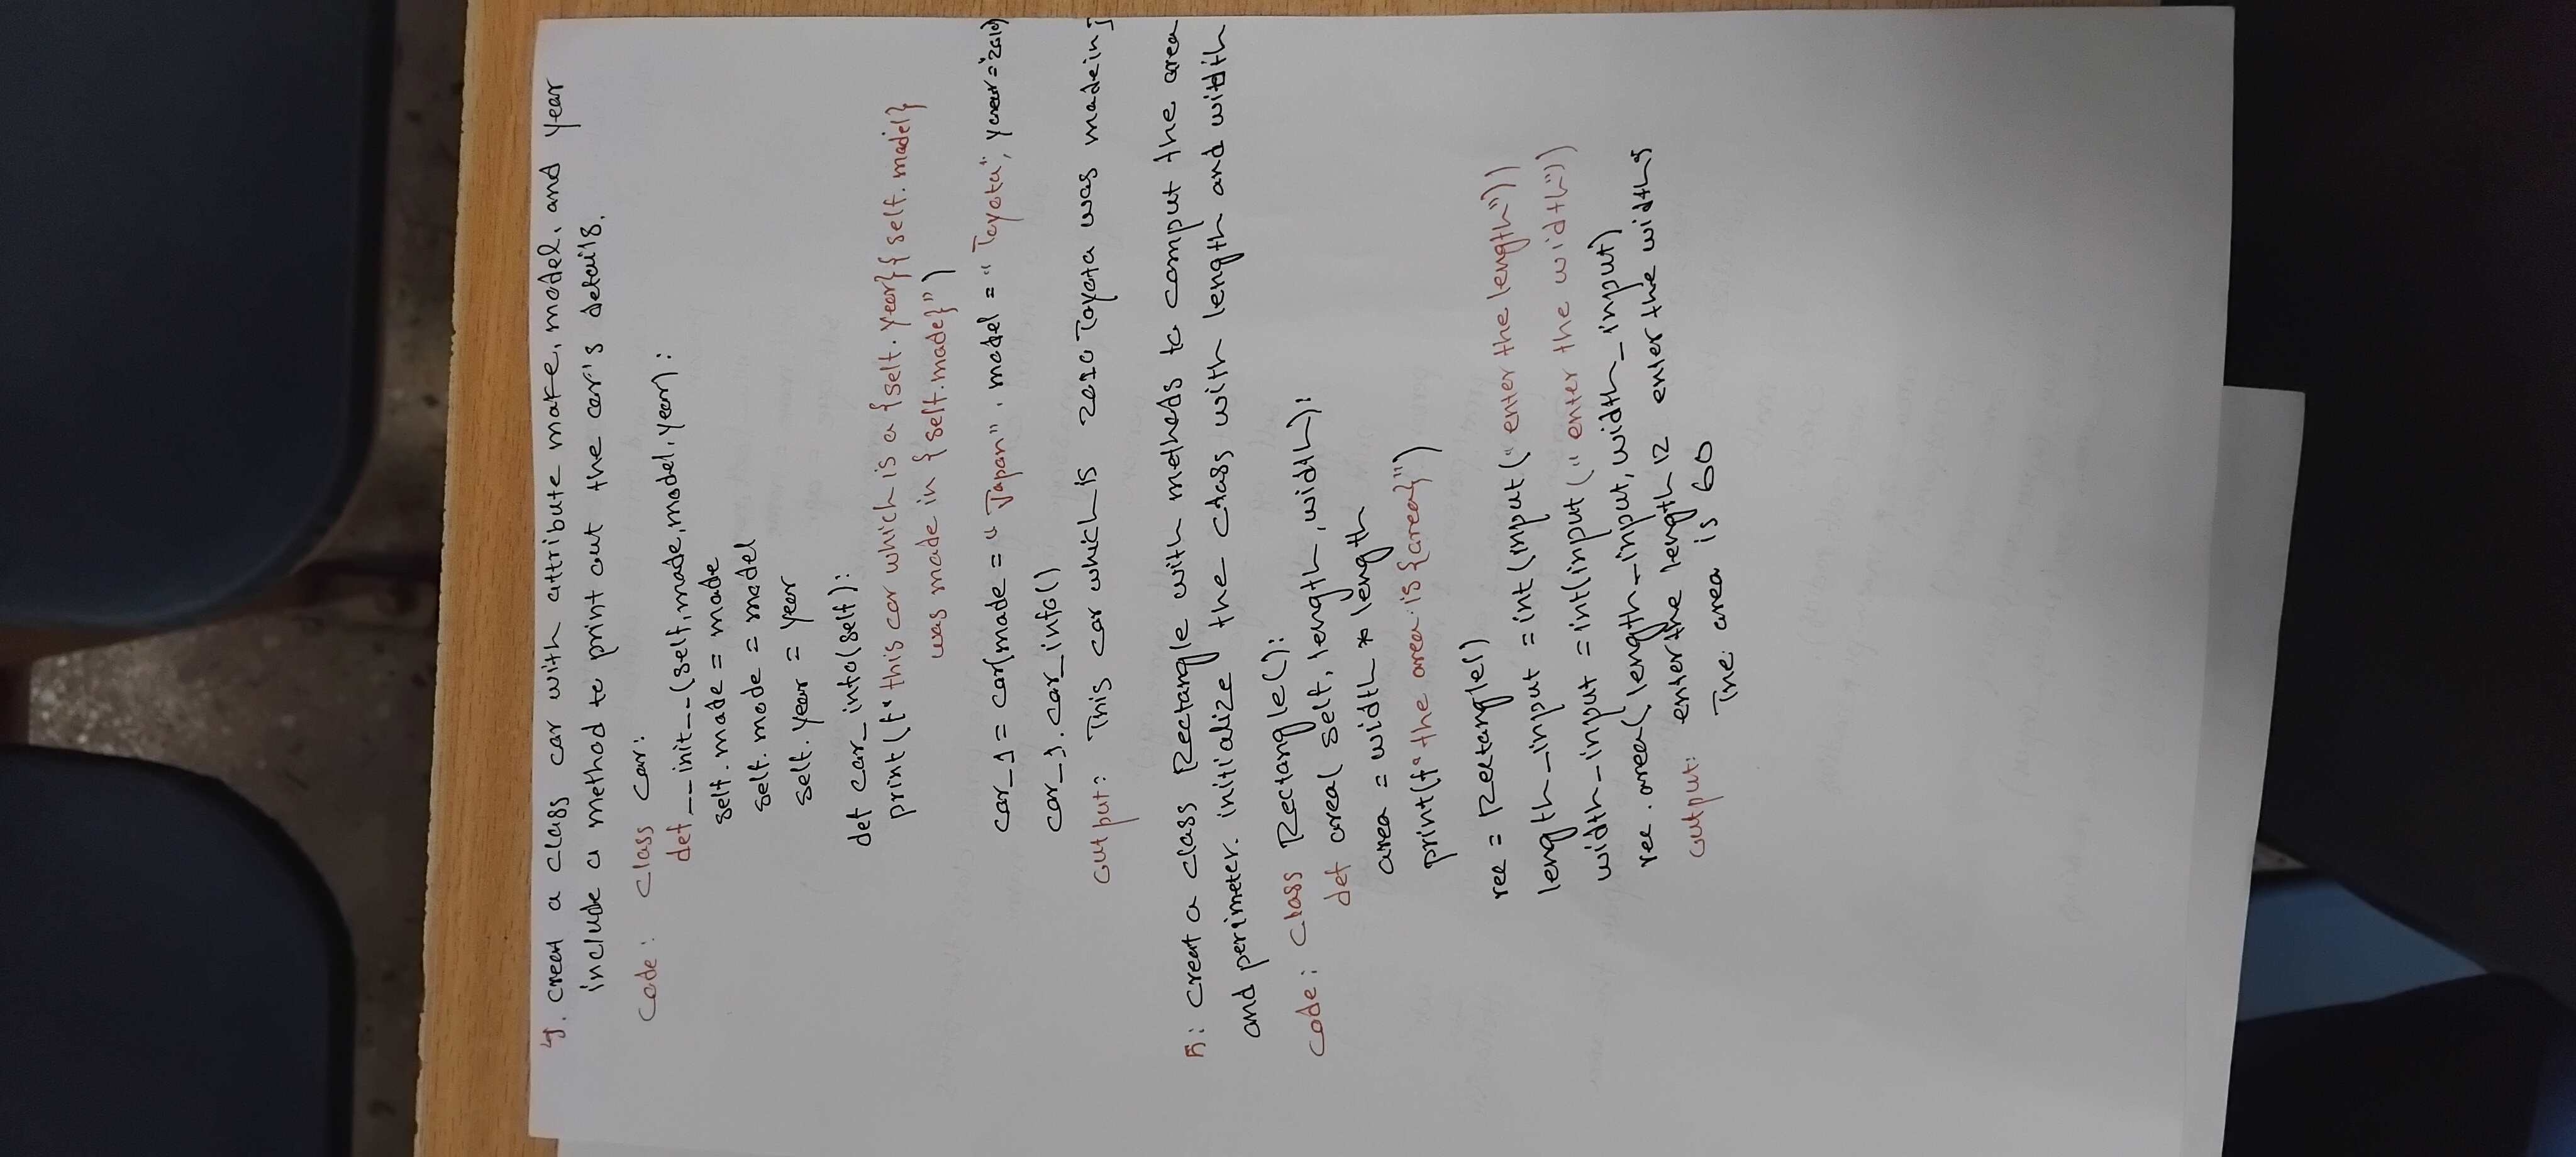 4. creat a class car with attribute make, model, and year
include a method to print out the car's details.
Code: class car:
def __init__(self, made, model, year):
self.made = made
self.mode = model
self.year = year
def car_info(self):
print(f"this car which is a {self.year}{self.model}
was made in {self.made}")
car_1 = car(made = "Japan", model = "Toyota", year = "2010)
car_1.car_info()
output: This car which is 2010 Toyota was madein J
5: creat a class Rectangle with methods to comput the area
and perimeter. initialize the class with length and width
code: class Rectangle():
def area( self, length, width):
area = width * length
print(f"the area is {area}")
rec = Rectangle()
length_input = int(input("enter the length"))
width_input = int(input("enter the width"))
rec.area(length_input, width_input)
output: enter the length 12 enter the width 5
The area is 60